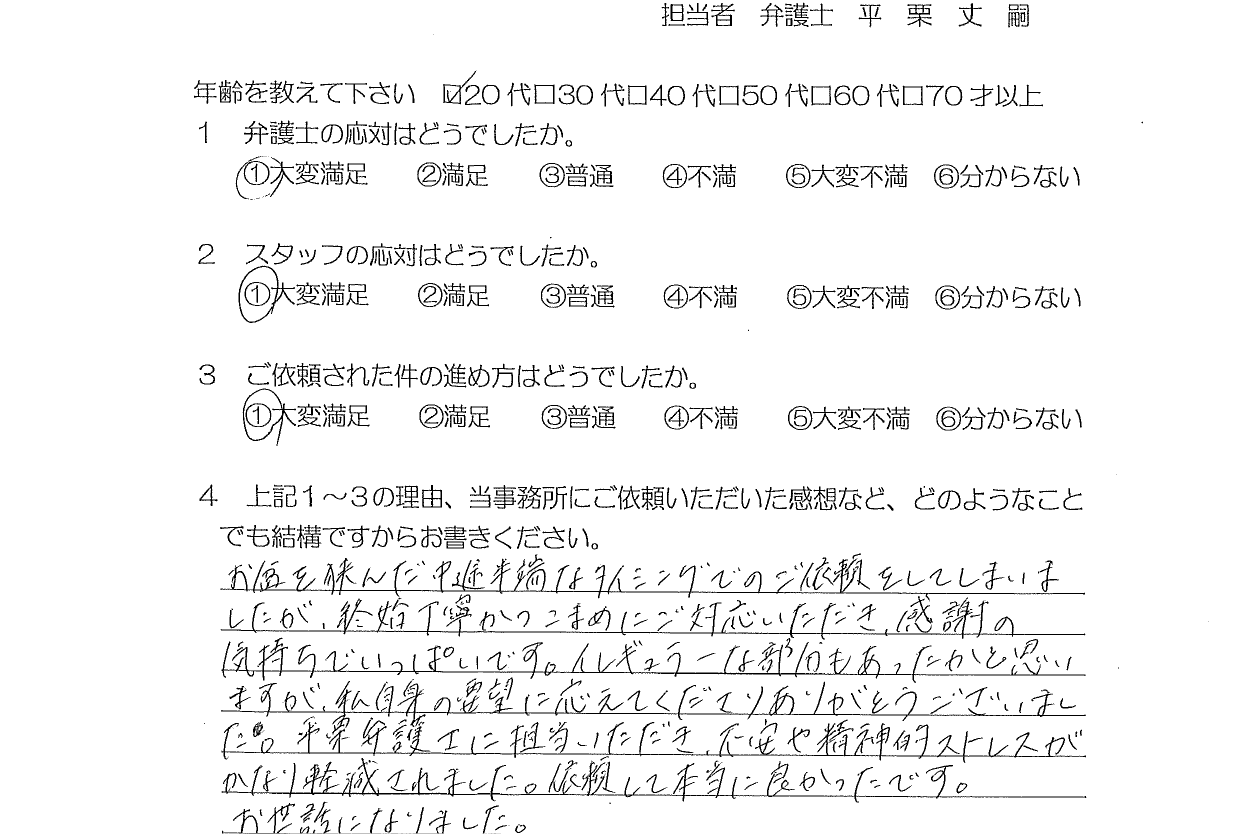 担当者　弁護士　平　栗　丈　嗣
年齢を教えて下さい　☑20代□30代□40代□50代□60代□70才以上
1　弁護士の応対はどうでしたか。
①大変満足　②満足　③普通　④不満　⑤大変不満　⑥分からない
2　スタッフの応対はどうでしたか。
①大変満足　②満足　③普通　④不満　⑤大変不満　⑥分からない
3　ご依頼された件の進め方はどうでしたか。
①大変満足　②満足　③普通　④不満　⑤大変不満　⑥分からない
4　上記1～3の理由、当事務所にご依頼いただいた感想など、どのようなこと
でも結構ですからお書きください。
お盆を挟んだ中途半端なタイミングでのご依頼をしてしまいま
したが、終始丁寧かつこまめにご対応いただき、感謝の
気持ちでいっぱいです。イレギュラーな部分もあったかと思い
ますが、私自身の要望に応えてくださりありがとうございまし
た。平栗弁護士に担当いただき、不安や精神的ストレスが
かなり軽減されました。依頼して本当に良かったです。
お世話になりました。